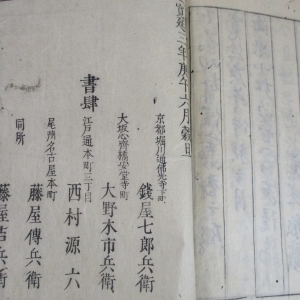 寛延三年庚午六月穀旦
京都堀川通佛光寺下町
錢屋七郎兵衛
大坂心齊橋安堂寺町
大野木市兵衛
書肆
江戸通本町三丁目
西村源六
尾州名古屋本町
藤屋傳兵衛
同所
藤屋吉兵衛